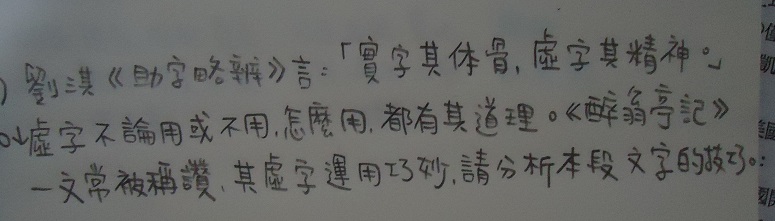 劉淇《助字略辨》言:「實字其体骨,虛字其精神。」
虛字不論用或不用,怎麼用,都有其道理。《醉翁亭記》
一文常被稱讚,其虛字運用巧妙,請分析本段文字的技巧。: